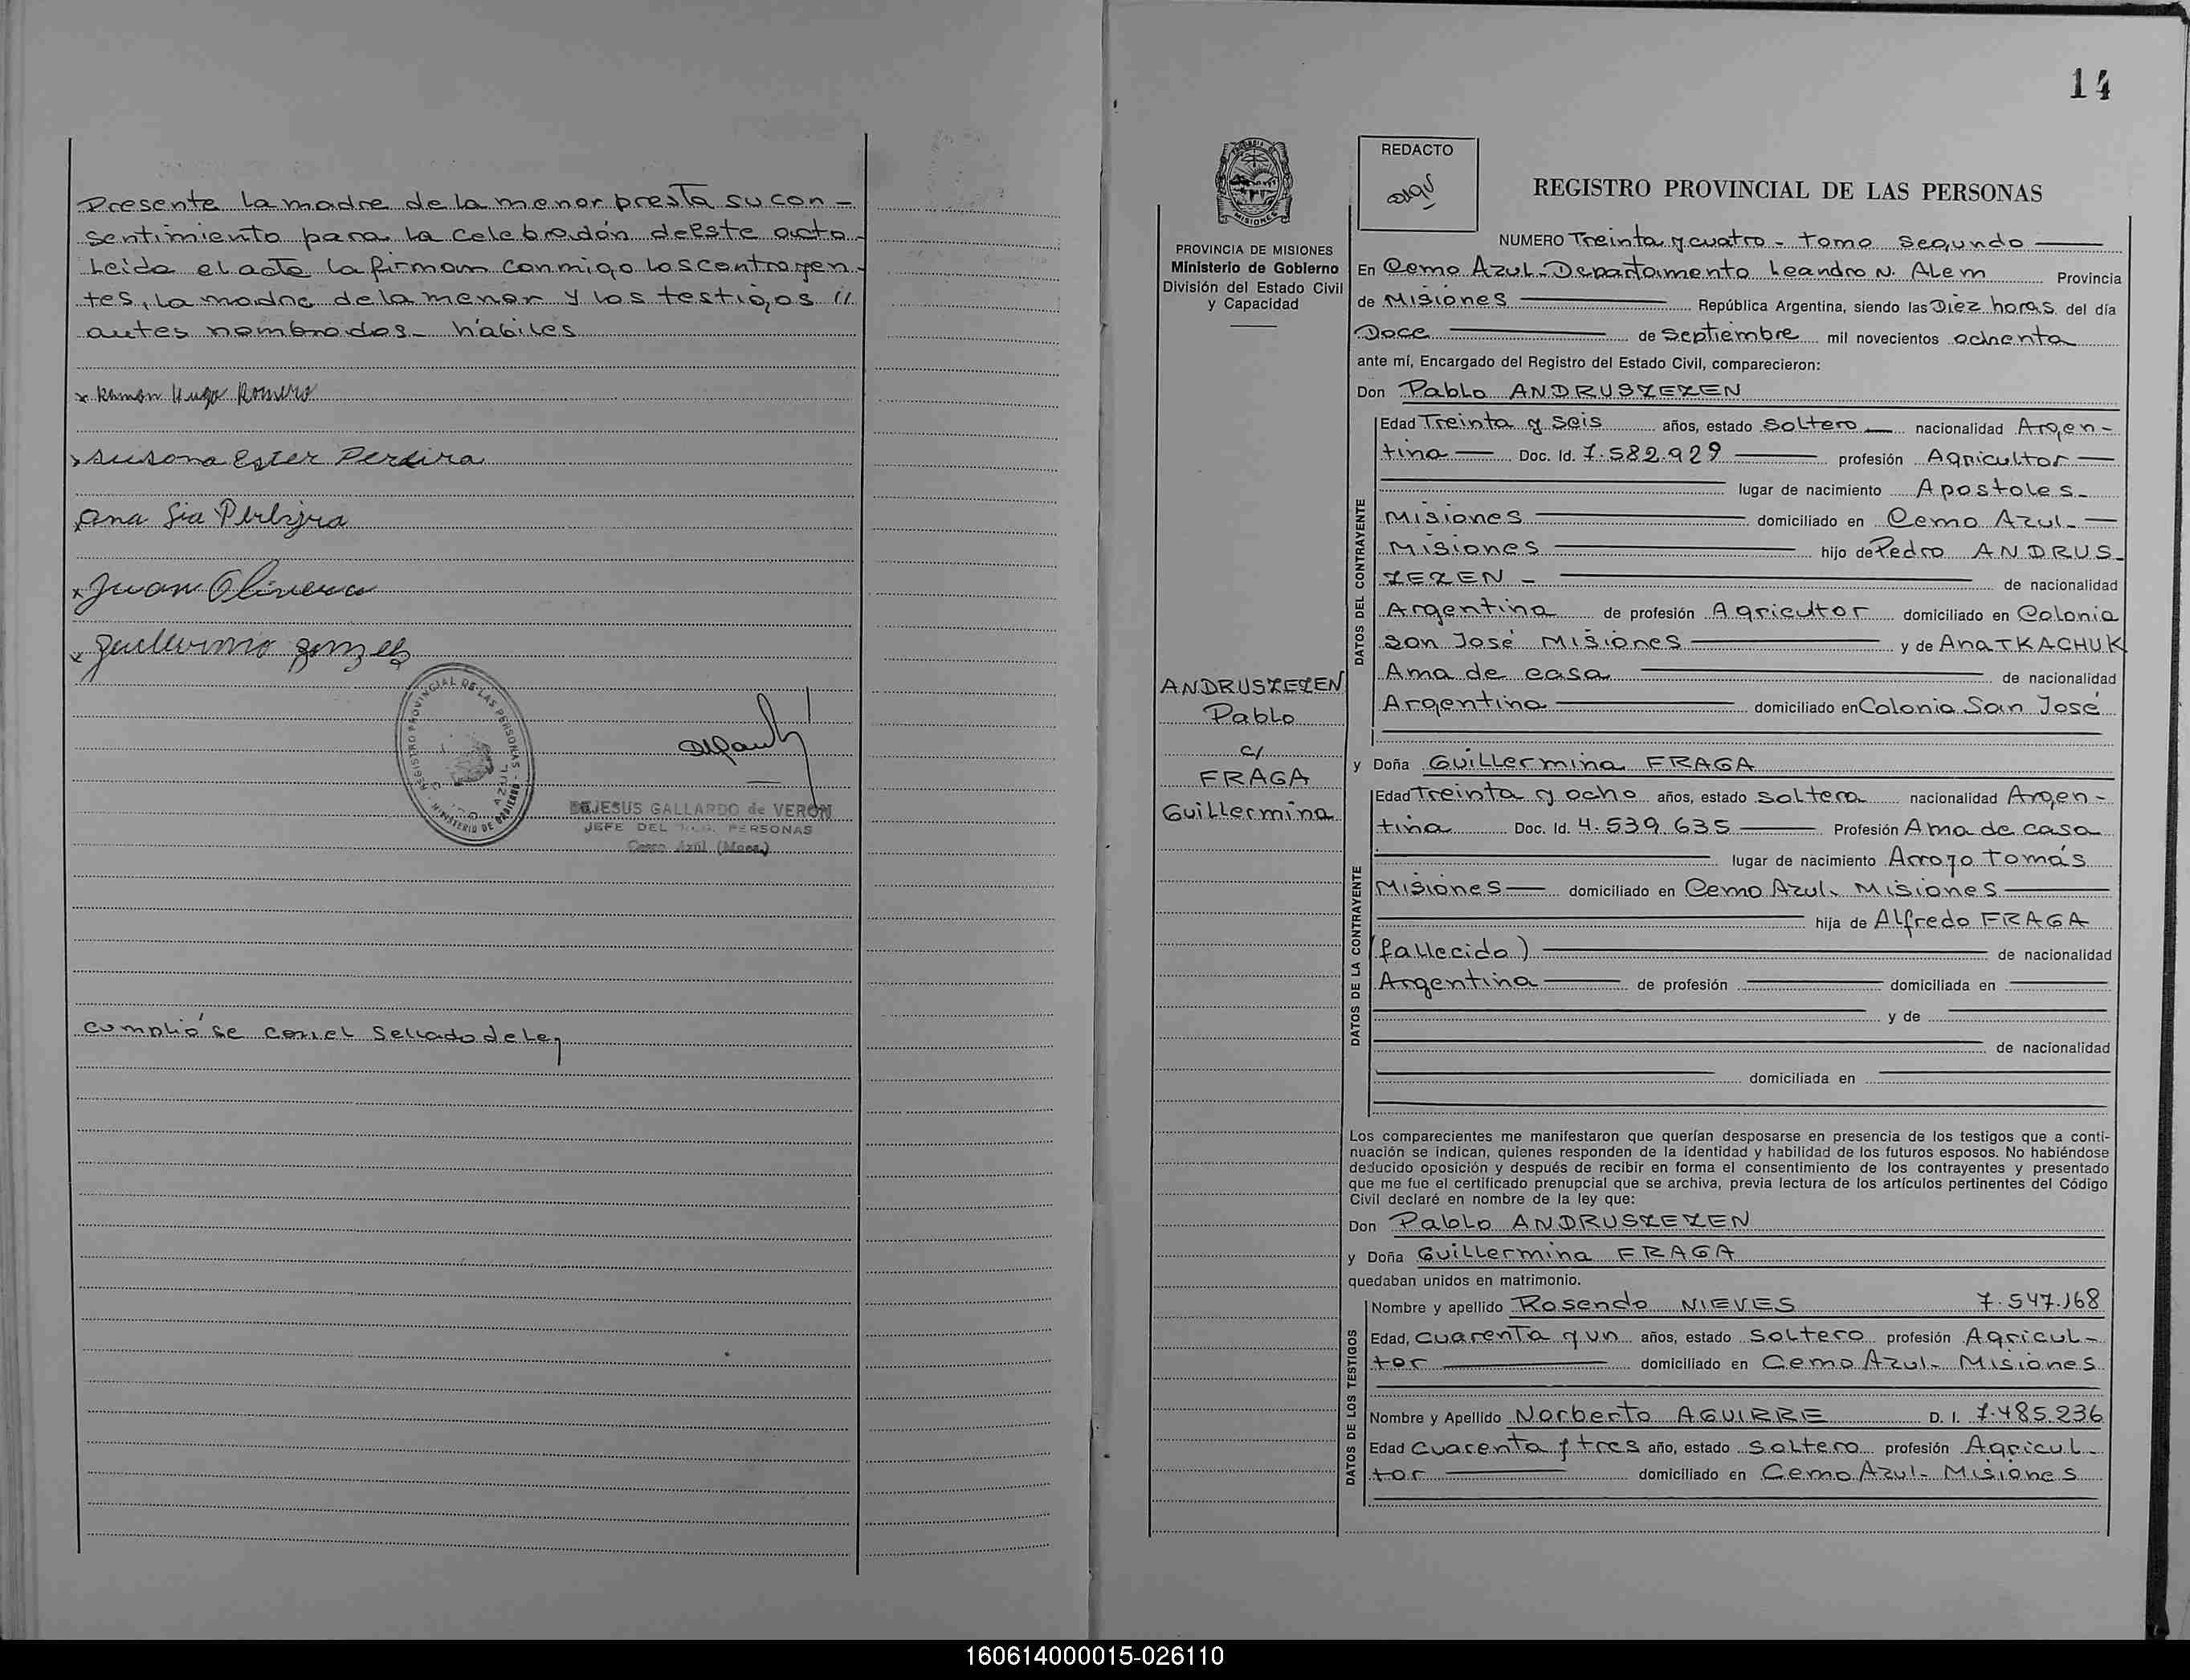 Presente la madre de la menor presta su con-
sentimiento para la celebración de este acto.
Leida el acta la firman conmigo los contrayen-
tes, la madre de la menor y los testigos //
antes nombrados - hábiles
x Ramón Hugo Romero
x Susona Ester Pereira
Ana
x Juan Olivera
x Guillermo
REGISTRO PROVINCIAL DE LAS PERSONAS - MINISTERIO DE GOBIERNO
DEJESUS GALLARDO de VERON
JEFE DEL REG. PERSONAS
Cerro Azul (Mnes.)
cumplió se con el sellado de Ley
14
REDACTO
MISIONES
PROVINCIA DE MISIONES
Ministerio de Gobierno
División del Estado Civil
y Capacidad
REGISTRO PROVINCIAL DE LAS PERSONAS
NUMERO Treinta y cuatro - tomo segundo
En Cerro Azul - Departamento Leandro N. Alem Provincia
de Misiones República Argentina, siendo las Diez horas del día
Doce de Septiembre mil novecientos ochenta
ante mí, Encargado del Registro del Estado Civil, comparecieron:
Don Pablo ANDRUSZEZEN
DATOS DEL CONTRAYENTE
Edad Treinta y seis años, estado soltero nacionalidad Argen-
tina Doc. Id. 7.582.929 profesión Agricultor
lugar de nacimiento Apostoles-
Misiones domiciliado en Cerro Azul-
Misiones hijo de Pedro ANDRUS-
ZEZEN - de nacionalidad
Argentina de profesión Agricultor domiciliado en Colonia
San José Misiones y de Ana TKACHUK
Ama de casa de nacionalidad
Argentina domiciliado en Colonia San José
ANDRUSZEZEN
Pablo
c/
FRAGA
Guillermina
y Doña Guillermina FRAGA
DATOS DE LA CONTRAYENTE
Edad Treinta y ocho años, estado soltera nacionalidad Argen-
tina Doc. Id. 4.539.635 Profesión Ama de casa
lugar de nacimiento Arroyo Tomás
Misiones domiciliado en Cerro Azul. Misiones
hija de Alfredo FRAGA
(fallecido) de nacionalidad
Argentina de profesión domiciliada en
y de
de nacionalidad
domiciliada en
Los comparecientes me manifestaron que querían desposarse en presencia de los testigos que a conti-
nuación se indican, quienes responden de la identidad y habilidad de los futuros esposos. No habiéndose
deducido oposición y después de recibir en forma el consentimiento de los contrayentes y presentado
que me fue el certificado prenupcial que se archiva, previa lectura de los artículos pertinentes del Código
Civil declaré en nombre de la ley que:
Don Pablo ANDRUSZEZEN
y Doña Guillermina FRAGA
quedaban unidos en matrimonio.
DATOS DE LOS TESTIGOS
Nombre y apellido Rosendo NIEVES 7.547.168
Edad, cuarenta y un años, estado soltero profesión Agricul-
tor domiciliado en Cerro Azul- Misiones
Nombre y Apellido Norberto AGUIRRE D. I. 7.485.236
Edad Cuarenta y tres año, estado soltero profesión Agricul-
tor domiciliado en Cerro Azul- Misiones
160614000015-026110